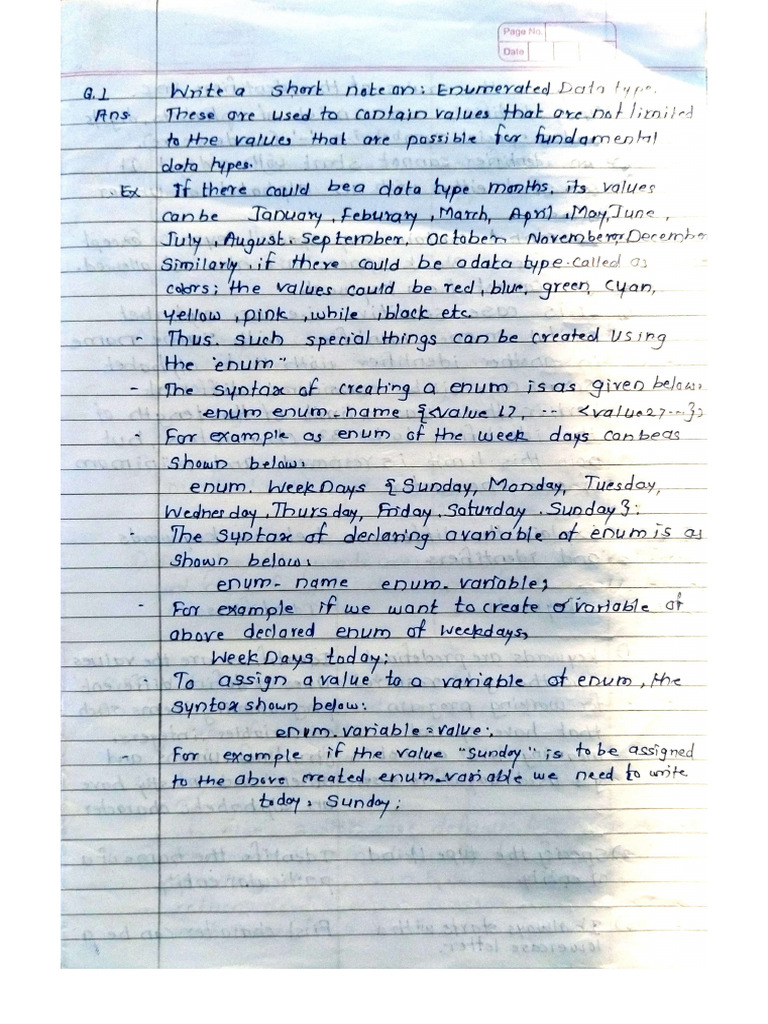 Page No.
Date
Q.1 Write a short note on: Enumerated Data type.
Ans These are used to contain values that are not limited
to the values that are possible for fundamental
data types.
Ex If there could be a data type months, its values
can be January, Feburary, March, April, May, June,
July, August. September, October November or December
Similarly, if there could be a data type called as
colors; the values could be red, blue, green, Cyan,
yellow, pink, while, black etc.
- Thus. such special things can be created Using
the "enum"
- The syntax of creating a enum is as given below:
enum enum-name {<value 1>, -- <value2>---};
- For example as enum of the week days can be as
shown below:
enum. WeekDays { Sunday, Monday, Tuesday,
Wednesday, Thursday, Friday, Saturday. Sunday};
- The Syntax of declaring a variable of enum is as
shown below:
enum-name enum-variable;
- For example if we want to create a variable of
above declared enum of weekdays,
WeekDays today;
- To assign a value to a variable of enum, the
syntax shown below:
enum.variable=value;
- For example if the value "Sunday" is to be assigned
to the above created enum-variable we need to write
today = Sunday;